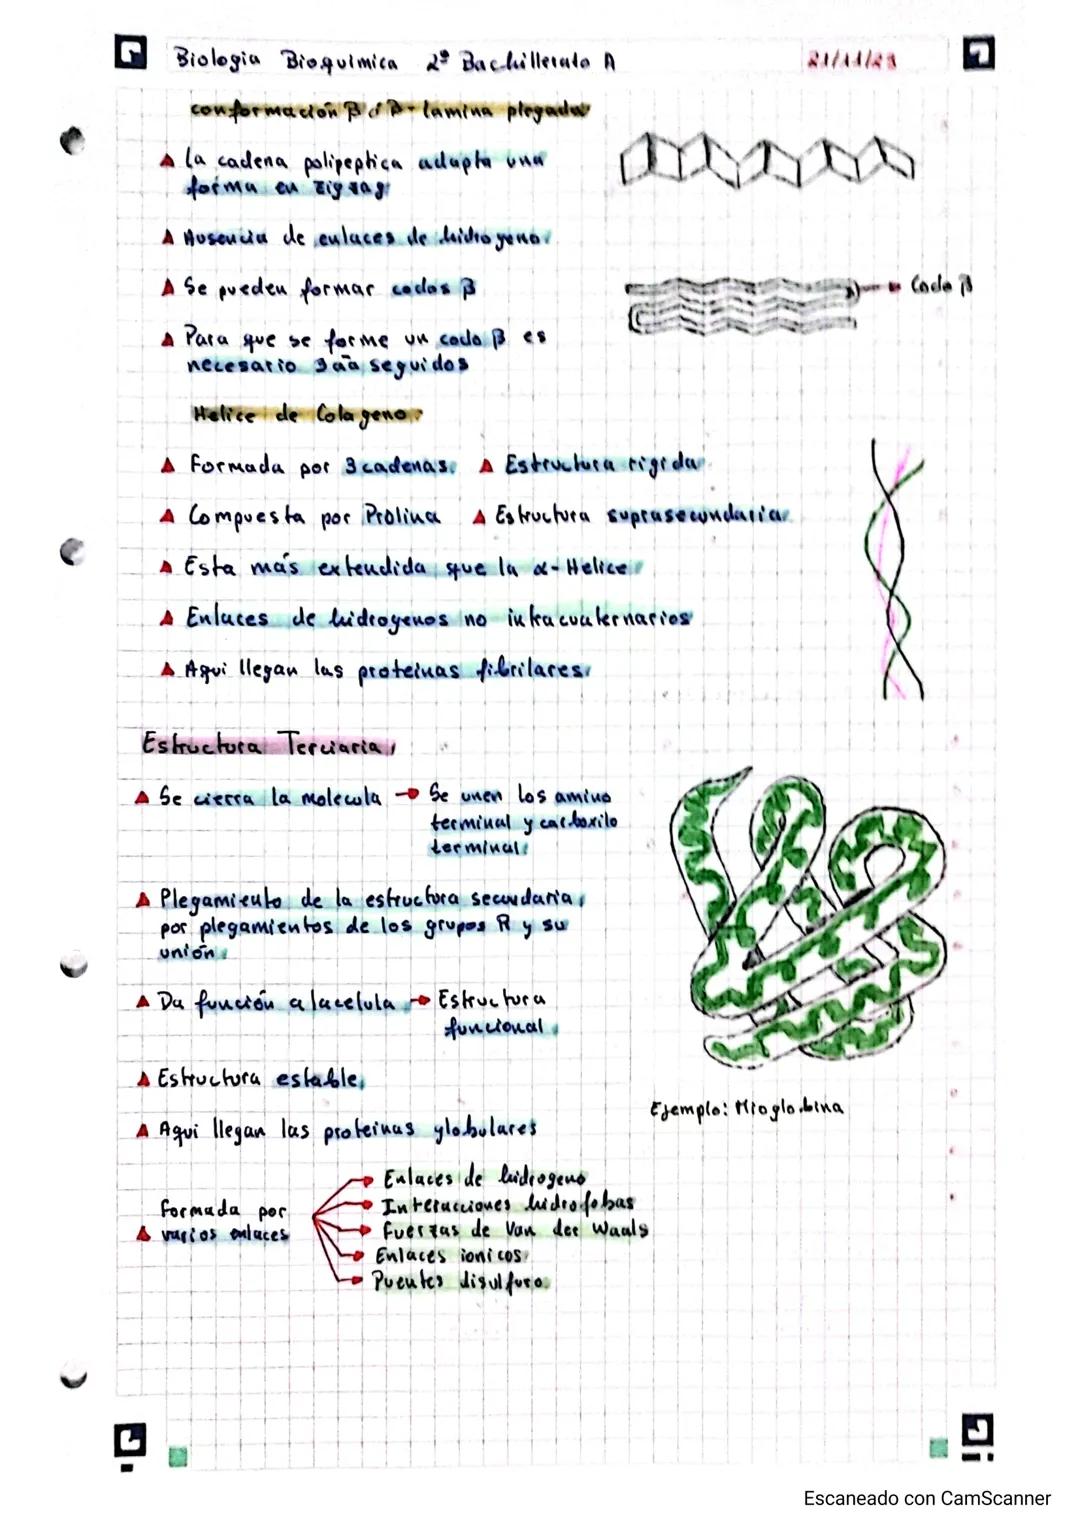 Biologia Bioquimica 2º Bachillerato A 21/11/23
conformación β ó β-lamina plegada
La cadena polipeptica adapta una
forma en zigzag
Ausencia de enlaces de hidrogeno.
Se pueden formar codos β
Codo β
Para que se forme un codo β es
necesario 3 aa seguidos
Helice de Colageno:
Formada por 3 cadenas. Estructura rigida
Compuesta por Prolina Estructura suprasecundaria
Esta más extendida que la α-Helice
Enlaces de hidrogenos no
Aqui llegan las proteinas fibrilares.
Estructura Terciaria
Se cierra la molecula → Se unen los amino
terminal y carboxilo
terminal.
Plegamiento de la estructura secundaria,
por plegamientos de los grupos R y su
unión.
Da función a la celula → Estructura
funcional.
Estructura estable.
Aqui llegan las proteinas globulares
Ejemplo: Mioglobina
formada por
varios enlaces
Enlaces de hidrogeno
Interacciones hidrofobas
Fuerzas de Van der Waals
Enlaces ionicos
Puentes disulfuro.
Escaneado con CamScanner